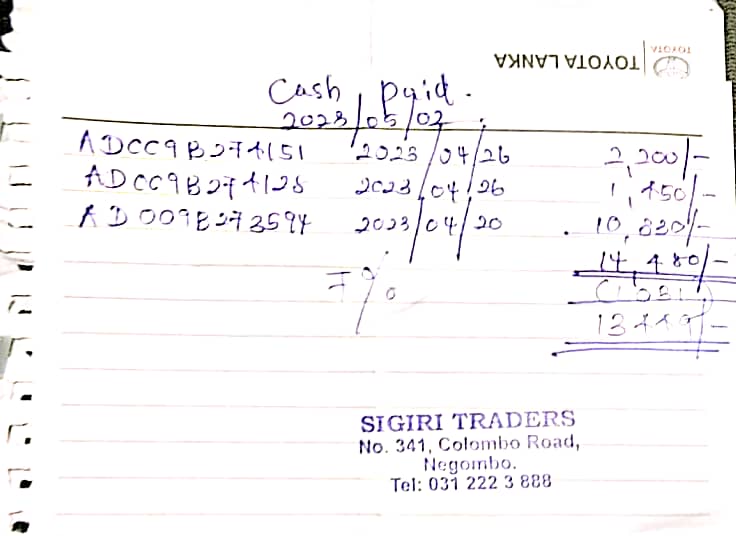 TOYOTA LANKA
TOYOTA
Cash Paid.
2023/05/02
AD009B274151 2023/04/26 2,200/-
AD009B274128 2023/04/26 1,450/-
AD009B273594 2023/04/20 10,830/-
14,480/-
7% (1,031)
13449/-
SIGIRI TRADERS
No. 341, Colombo Road,
Negombo.
Tel: 031 222 3 888